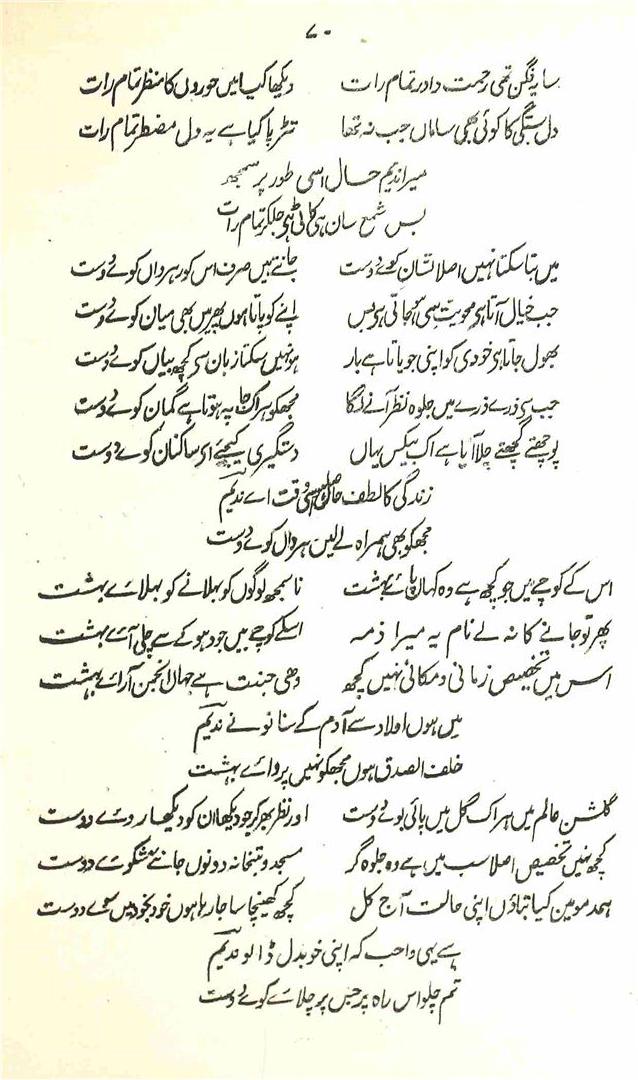 ۷۰
سایہ فگن تھی رحمت داور تمام رات دیکھا کیا میں حوروں کا منظر تمام رات
دل بستگی کا کوئی بھی ساماں جب نہ تھا تڑپا کیا ہے یہ دل مضطر تمام رات
میرا ندیم حال اسی طور پر سمجھ
بس شمع سان ہی کاٹی ہی جلکر تمام رات
میں بتا سکتا نہیں اصلا نشان کوے دوست جانتے ہیں صرف اس کو رہرواں کوے دوست
جب خیال آتا ہی محویت سی ہو جاتی ہی بس اپنے کو پاتا ہوں پھر میں بھی میان کوے دوست
بھول جاتا ہی خودی کو اپنی جو پاتا ہے بار ہو نہیں سکتا زبان سی کچھ بیاں کوے دوست
جب سی ذرے ذرے میں جلوہ نظر آنے لگا مجھکو ہر اک جا پہ ہوتا ہے گمان کوے دوست
پوچھتے گچھتے چلا آیا ہے اک بیکس یہاں دستگیری کیجئے ای ساکنان کوے دوست
زندگی کا لطف حاصل اسی وقت اے ندیم
مجھکو بھی ہمراہ لے لیں رہرواں کوے دوست
اس کے کوچے میں جو کچھ ہے وہ کہاں پائے بہشت ناسمجھ لوگوں کو بہلانے کو بہلائے بہشت
پھر تو جانے کا نہ لے نام یہ میرا ذمہ اسکے کوچے میں جو دھوکے سے چلی آئے بہشت
اس میں تخصیص زمانی و مکانی نہیں کچھ وھی جنت ہے جہاں انجمن آرائے بہشت
میں ہوں اولاد سے آدم کے سنا تو نے ندیم
خلف الصدق ہوں مجھکو نہیں پروائے بہشت
گلشن عالم میں ہر اک گل میں پائی بوے دوست اور نظر بھر کر جو دیکھا ان کو دیکھا روئے دوست
کچھ نہیں تخصیص اصلا سب میں ہے وہ جلوہ گر مسجد و بتخانہ دونوں جانتے دوست
ہمدمو میں کیا بتاؤں اپنی حالت آج کل کچھ کھینچا سا جا رہا ہوں خود بخود میں سوے دوست
ہے یہی واجب کہ اپنی خو بدل ڈالو ندیم
تم چلو اس راہ پر جس پر چلائے کوے دوست